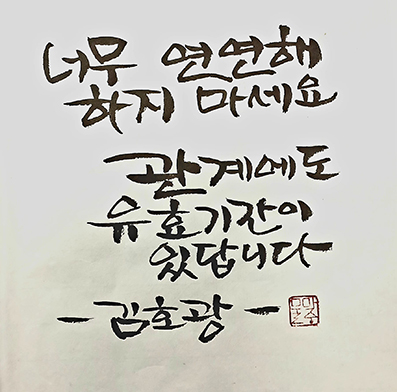 너무 연연해
하지 마세요
관계에도
유효기간이
있답니다
- 김호광 -